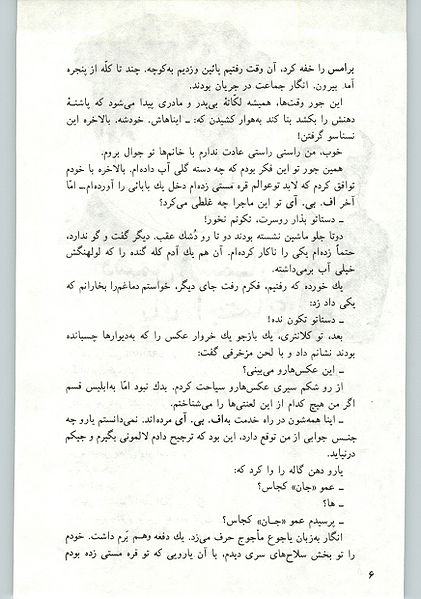 برامس را خفه کرد، آن وقت رفتیم پائین وزدیم به‌کوچه. چند تا کلّه از پنجره
آمد بیرون. انگار جماعت در جریان بودند.
این جور وقت‌ها، همیشه لکّاتهٔ بی‌پدر و مادری پیدا می‌شود که پاشنهٔ
دهنش را بکشد بنا کند به‌هوار کشیدن که: ــ ایناهاش. خودشه. بالاخره این
نسناسو گرفتن!
خوب، من راستی راستی عادت ندارم با خانم‌ها تو جوال بروم.
همین جور تو این فکر بودم که چه دسته گلی آب داده‌ام. بالاخره با خودم
توافق کردم که لابد توعوالم قره مستی زده‌ام دخل یك بابائی را آورده‌ام ــ امّا
آخر اف. بی. آی تو این ماجرا چه غلطی می‌کرد؟
ــ دستاتو بذار روسرت، تکونم نخور!
دوتا جلو ماشین نشسته بودند دو تا رو دُشك عقب. دیگر گفت و گو ندارد،
حتماً زده‌ام یکی را ناکار کرده‌ام. آن هم یك آدم کله گنده را که لولهنگش
خیلی آب برمی‌داشته.
یك خورده که رفتیم، فکرم رفت جای دیگر، خواستم دماغم‌را بخارانم که
یکی داد زد:
ــ دستاتو تکون نده!
بعد، تو کلانتری، یك بازجو یك خروار عکس را که به‌دیوارها چسبانده
بودند نشانم داد و با لحن مزخرفی گفت:
ــ این عکس‌هارو می‌بینی؟
از رو شکم سیری عکس‌هارو سیاحت کردم. بدك نبود امّا به‌ابلیس قسم
اگر من هیچ کدام از این لعنتی‌ها را می‌شناختم.
ــ اینا همه‌شون در راه خدمت به‌اف. بی. آی مرده‌اند. نمی‌دانستم یارو چه
جنس جوابی از من توقع دارد، این بود که ترجیح دادم لالمونی بگیرم و جیکم
درنیاید.
یارو دهن گاله را وا کرد که:
ــ عمو «جان» کجاس؟
ــ ها؟
ــ پرسیدم عمو «جان» کجاس؟
انگار به‌زبان یاجوج ماجوج حرف می‌زد. یك دفعه وهم بَرم داشت. خودم
را تو بخش سلاح‌های سری دیدم، با آن یارویی که تو قره مستی زده بودم
۶